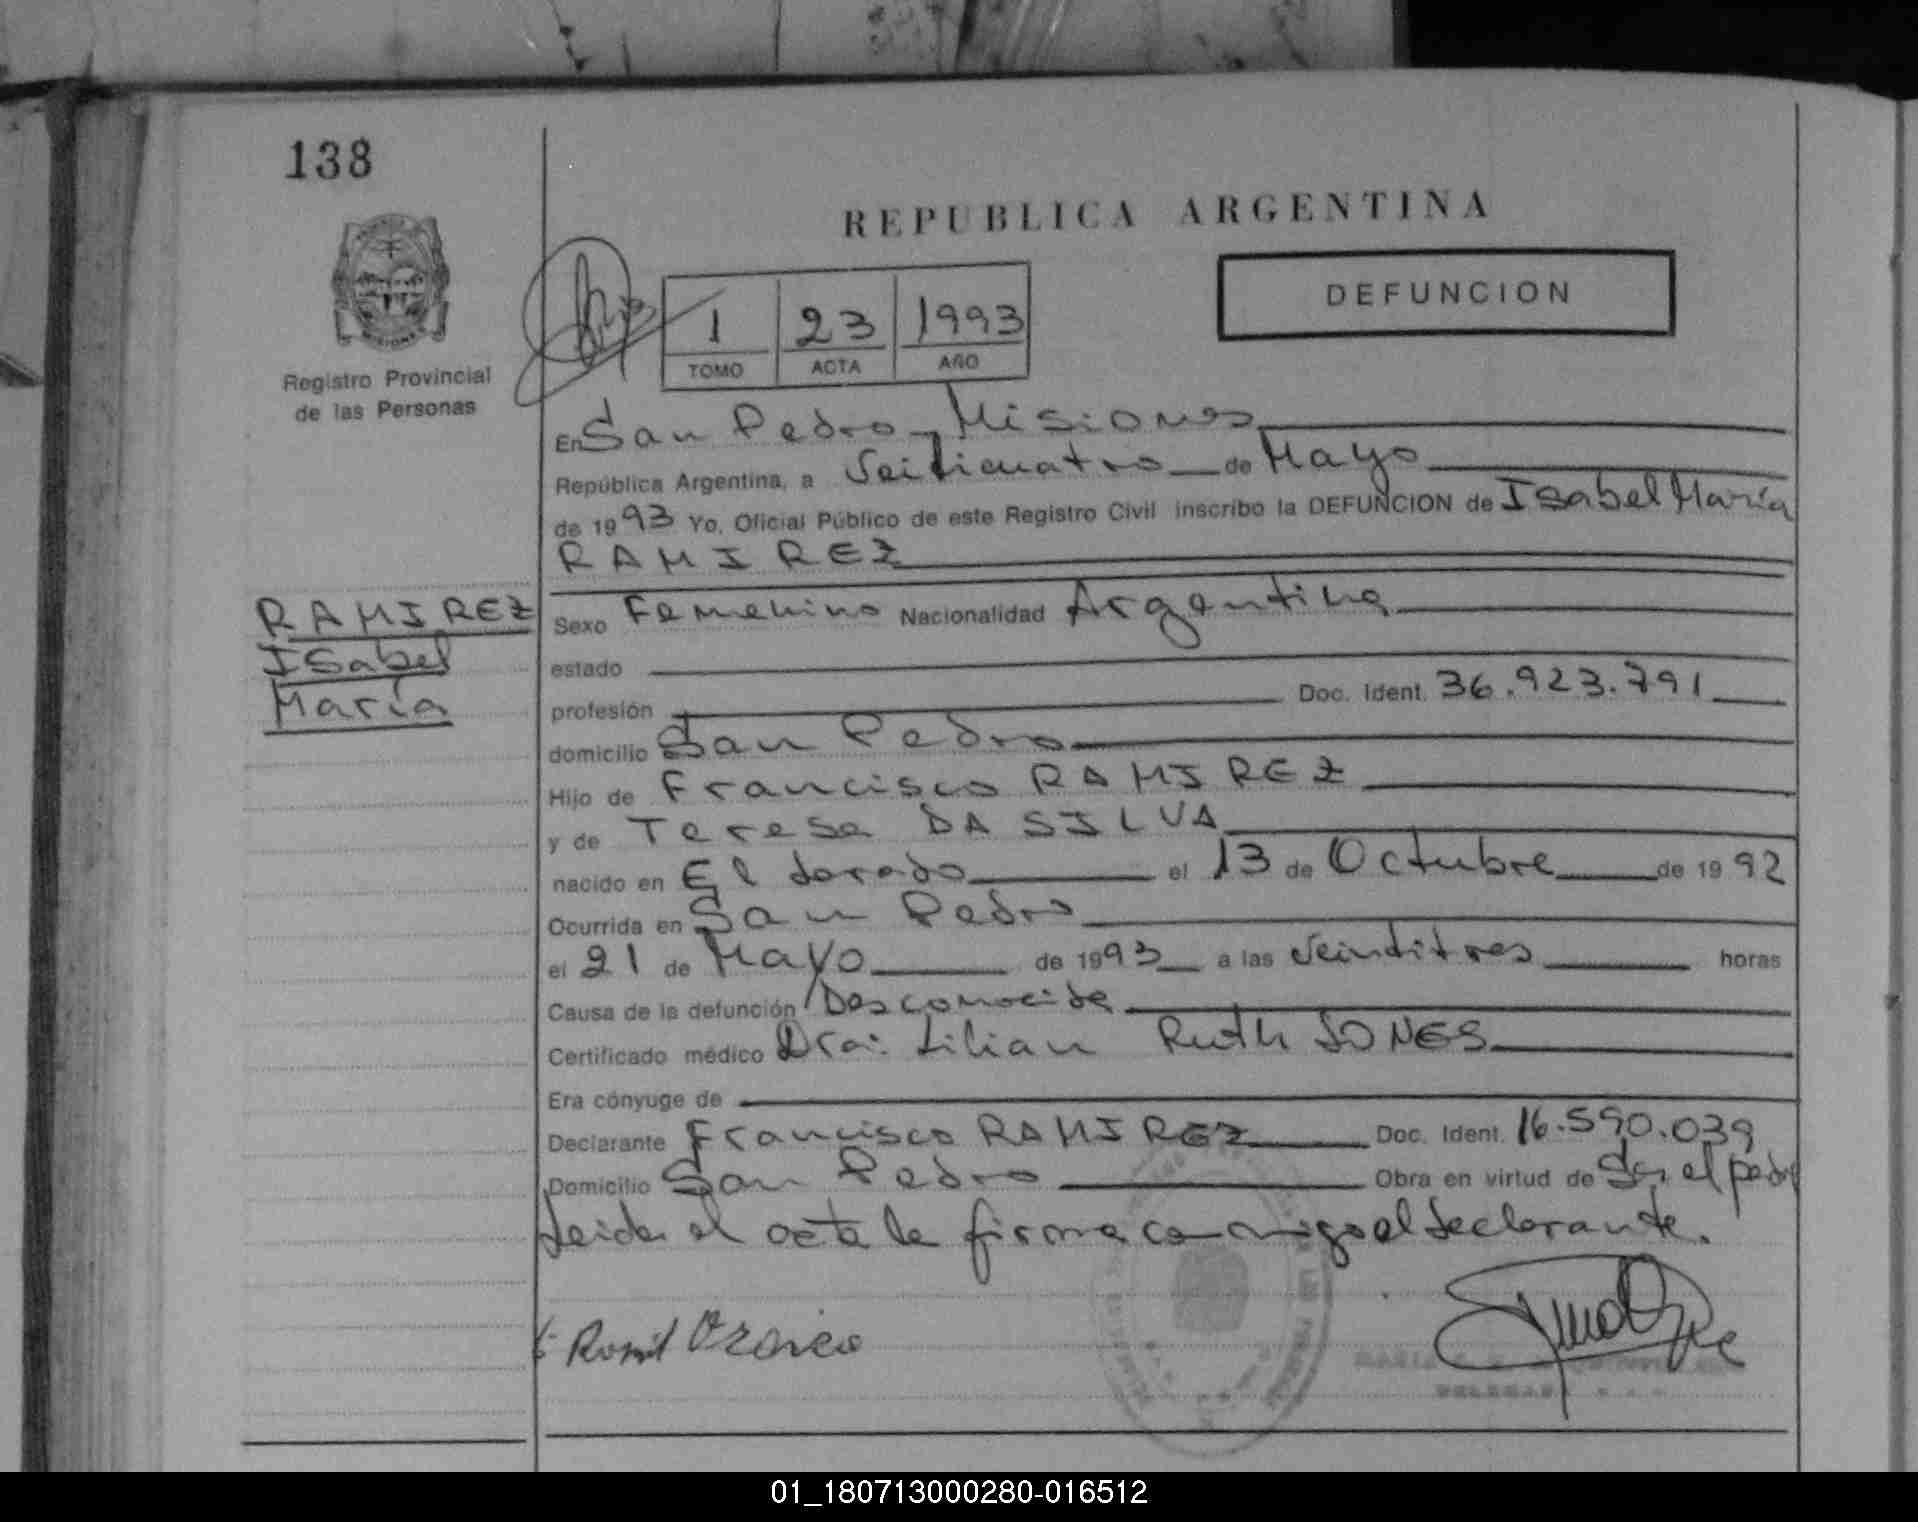 138
REPUBLICA ARGENTINA
DEFUNCION
Registro Provincial
de las Personas
1 23 1993
TOMO ACTA AÑO
En San Pedro - Misiones
República Argentina, a Veiticuatro de Mayo
de 1993 Yo, Oficial Público de este Registro Civil inscribo la DEFUNCION de Isabel María
RAMIREZ
RAMIREZ
Isabel
María
Sexo Femenino Nacionalidad Argentina
estado
profesión Doc. Ident. 36.923.791
domicilio San Pedro
Hijo de Francisco RAMIREZ
y de Teresa DA SILVA
nacido en El dorado el 13 de Octubre de 1992
Ocurrida en San Pedro
el 21 de Mayo de 1993 a las Veintitres horas
Causa de la defunción Desconocida
Certificado médico Dra: Lilian Ruth JONES
Era cónyuge de
Declarante Francisco RAMIREZ Doc. Ident. 16.590.039
Domicilio San Pedro Obra en virtud de Ser el padre
Leida el acta la firma conmigo el declarante.
01_180713000280-016512